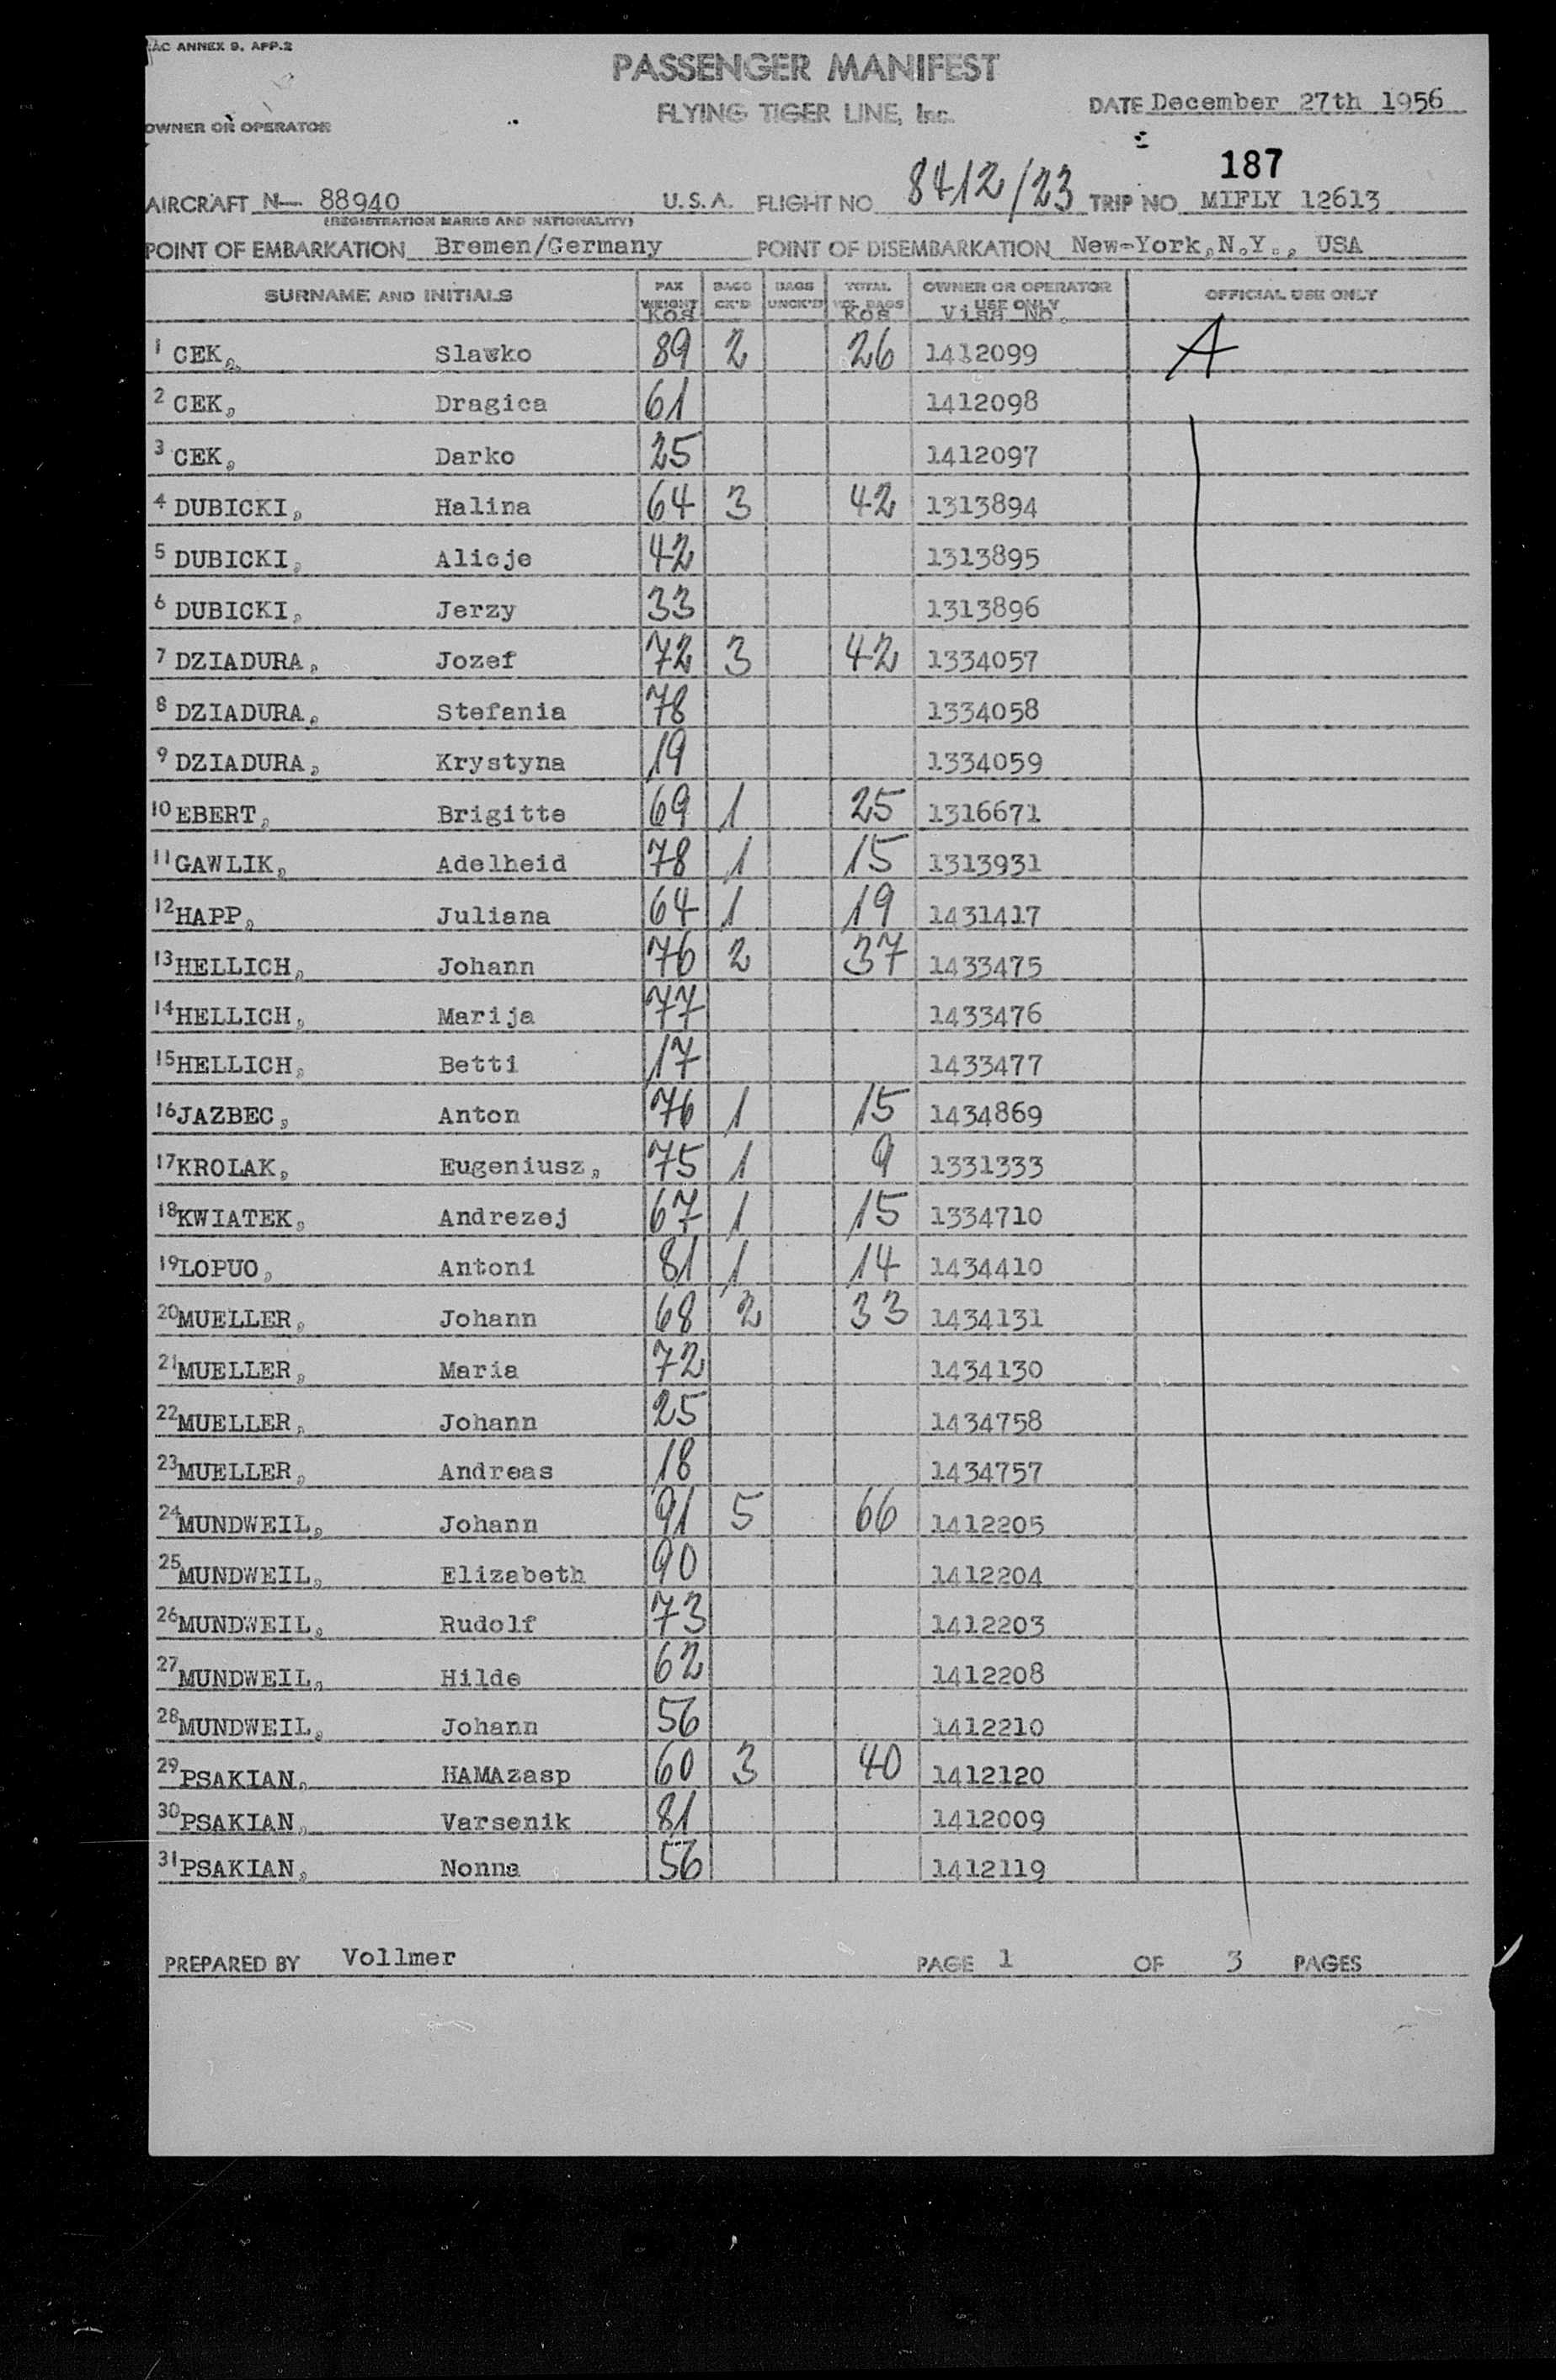 AC ANNEX 9, APP.2
PASSENGER MANIFEST
FLYING TIGER LINE, Inc.
DATE December 27th 1956
OWNER OR OPERATOR
187
AIRCRAFT N— 88940 U.S.A. FLIGHT NO 8412/23 TRIP NO MIFLY 12613
(REGISTRATION MARKS AND NATIONALITY)
POINT OF EMBARKATION Bremen/Germany POINT OF DISEMBARKATION New-York,N.Y., USA
SURNAME AND INITIALS PAX WEIGHT Kos BAGS CK'D BAGS UNCK'D TOTAL BAGS Kos OWNER OR OPERATOR USE ONLY Visa No. OFFICIAL USE ONLY
1 CEK, Slawko 89 2 26 1412099 A
2 CEK, Dragica 61 1412098
3 CEK, Darko 25 1412097
4 DUBICKI, Halina 64 3 42 1313894
5 DUBICKI, Alicje 42 1313895
6 DUBICKI, Jerzy 33 1313896
7 DZIADURA, Jozef 72 3 42 1334057
8 DZIADURA, Stefania 78 1334058
9 DZIADURA, Krystyna 19 1334059
10 EBERT, Brigitte 69 1 25 1316671
11 GAWLIK, Adelheid 78 1 15 1313931
12 HAPP, Juliana 64 1 19 1431417
13 HELLICH, Johann 76 2 37 1433475
14 HELLICH, Marija 77 1433476
15 HELLICH, Betti 17 1433477
16 JAZBEC, Anton 76 1 15 1434869
17 KROLAK, Eugeniusz, 75 1 9 1331333
18 KWIATEK, Andrezej 67 1 15 1334710
19 LOPUO, Antoni 81 1 14 1434410
20 MUELLER, Johann 68 2 33 1434131
21 MUELLER, Maria 72 1434130
22 MUELLER, Johann 25 1434758
23 MUELLER, Andreas 18 1434757
24 MUNDWEIL, Johann 91 5 66 1412205
25 MUNDWEIL, Elizabeth 90 1412204
26 MUNDWEIL, Rudolf 73 1412203
27 MUNDWEIL, Hilde 62 1412208
28 MUNDWEIL, Johann 56 1412210
29 PSAKIAN, HAMAzasp 60 3 40 1412120
30 PSAKIAN, Varsenik 81 1412009
31 PSAKIAN, Nonna 56 1412119
PREPARED BY Vollmer PAGE 1 OF 3 PAGES